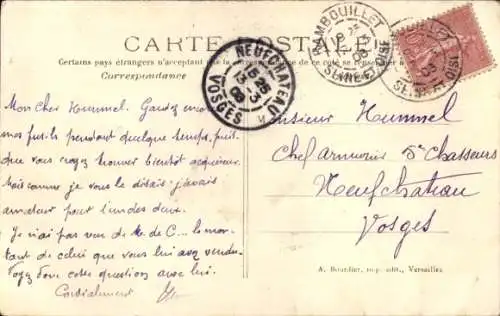 CARTE POSTALE
Certains pays étrangers n'acceptant pas la correspondance de ce côté se renseigner à la
Correspondance
RAMBOUILLET
SEINE-ET-OISE
NEUFCHATEAU
VOSGES
Mon cher Hummel. Gardez encore
mes fusils pendant quelque temps, puis
que vous croyez trouver bientôt acquéreur.
Mais comme je vous le disais j'avais
amateur pour l'un des deux.
Je n'ai pas vu de M. de C... le mon-
tant de celui que vous lui avez vendu.
Voyez donc cette question avec lui.
Cordialement
Monsieur Hummel
Chef armurier 5e Chasseurs
Neufchateau
Vosges
A. Bourdier, imp. edit., Versailles